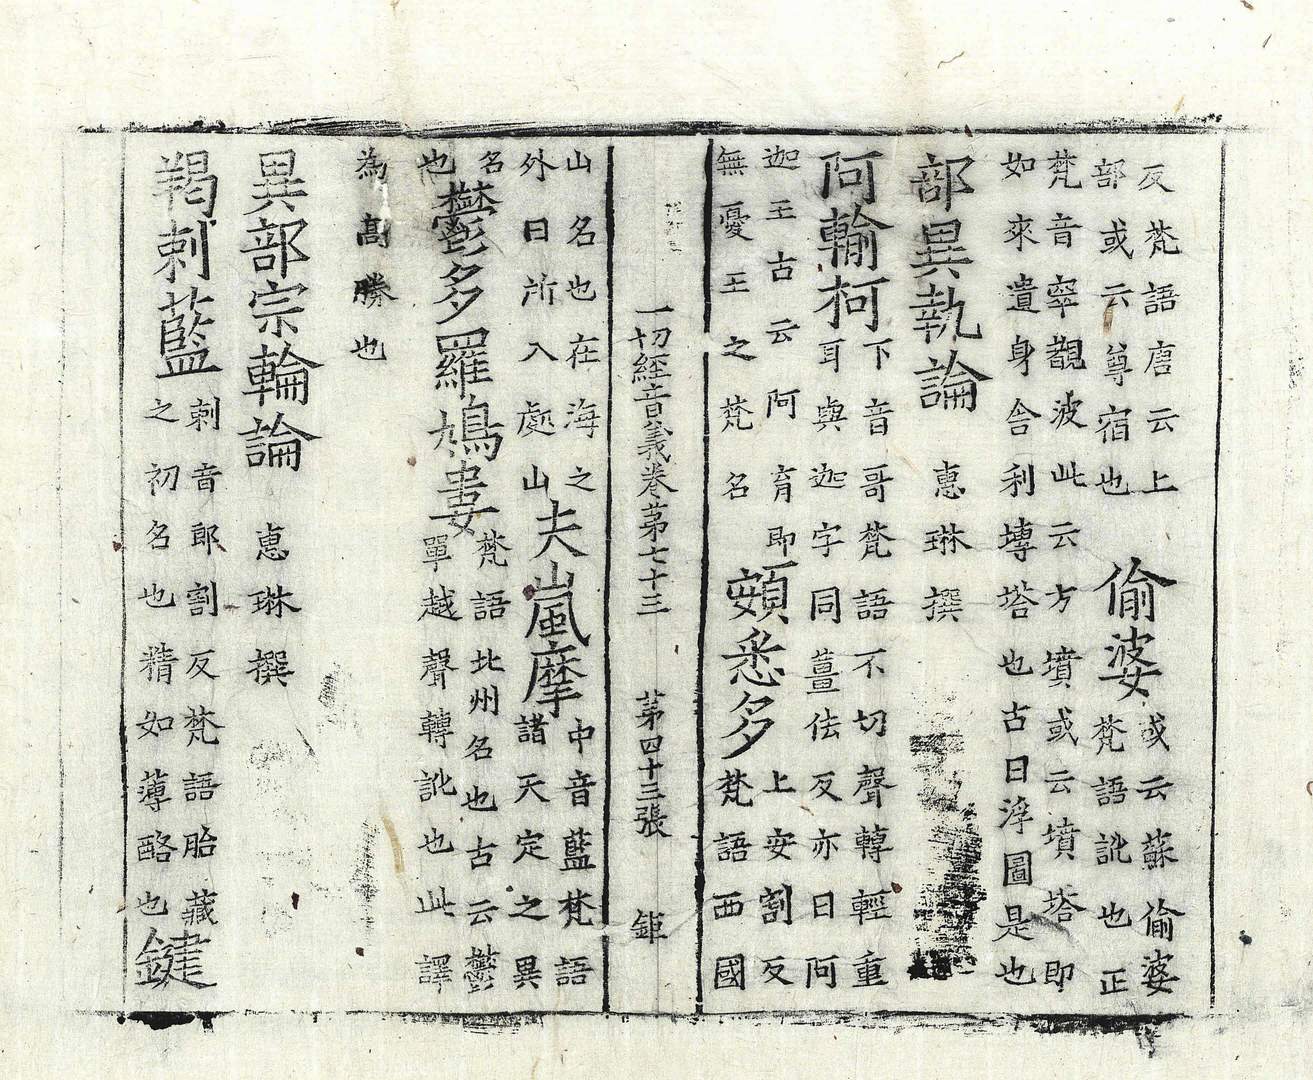 反梵語唐云上
部或云尊宿也
偷婆
或云蘇偷婆
梵語訛也正
梵音窣覩波此云方墳或云墳塔即
如來遺身舍利塼塔也古曰浮圖是也
部異執論 惠琳撰
阿輸柯
下音哥梵語不切聲轉輕重
耳與迦字同薑佉反亦曰阿
迦王古云阿育即
無憂王之梵名
頞悉多
上安割反
梵語西國
一切經音義卷苐七十三 苐四十三張 鉅
山名也在海之
外日所入處山
夫嵐摩
中音藍梵語
諸天定之異
名
也
鬱多羅鳩婁
梵語北州名也古云鬱
單越聲轉訛也此譯
為髙勝也
異部宗輪論 惠琳撰
羯剌藍
剌音郎割反梵語胎藏
之初名也精如薄酪也
鍵